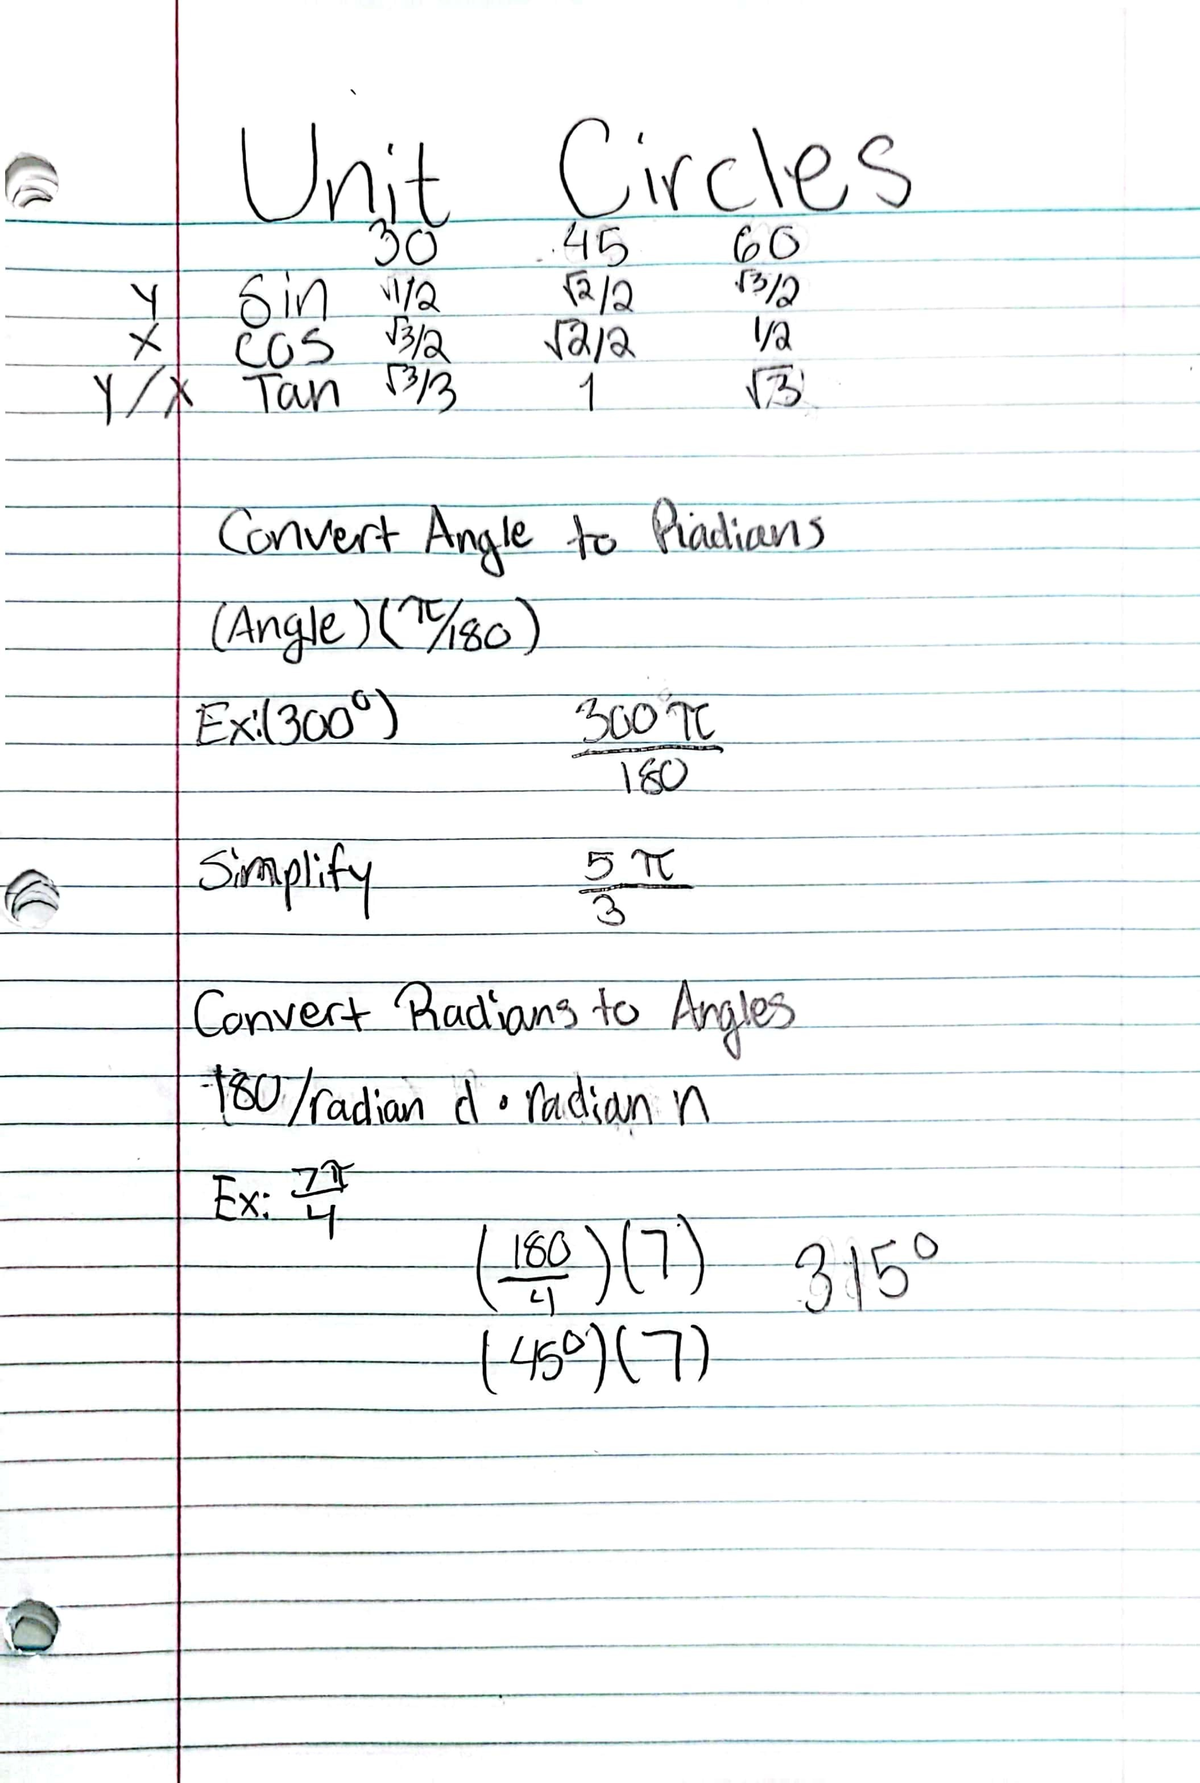 Unit Circles
30 45 60
Y Sin √1/2 √2/2 √3/2
X COS √3/2 √2/2 1/2
Y/X Tan √3/3 1 √3
Convert Angle to Radians
(Angle)(π/180)
Ex:(300°) 300°π
180
Simplify 5 π
3
Convert Radians to Angles
180/radian d • radian n
Ex: 7π
4
(180/4)(7) 315°
(45°)(7)